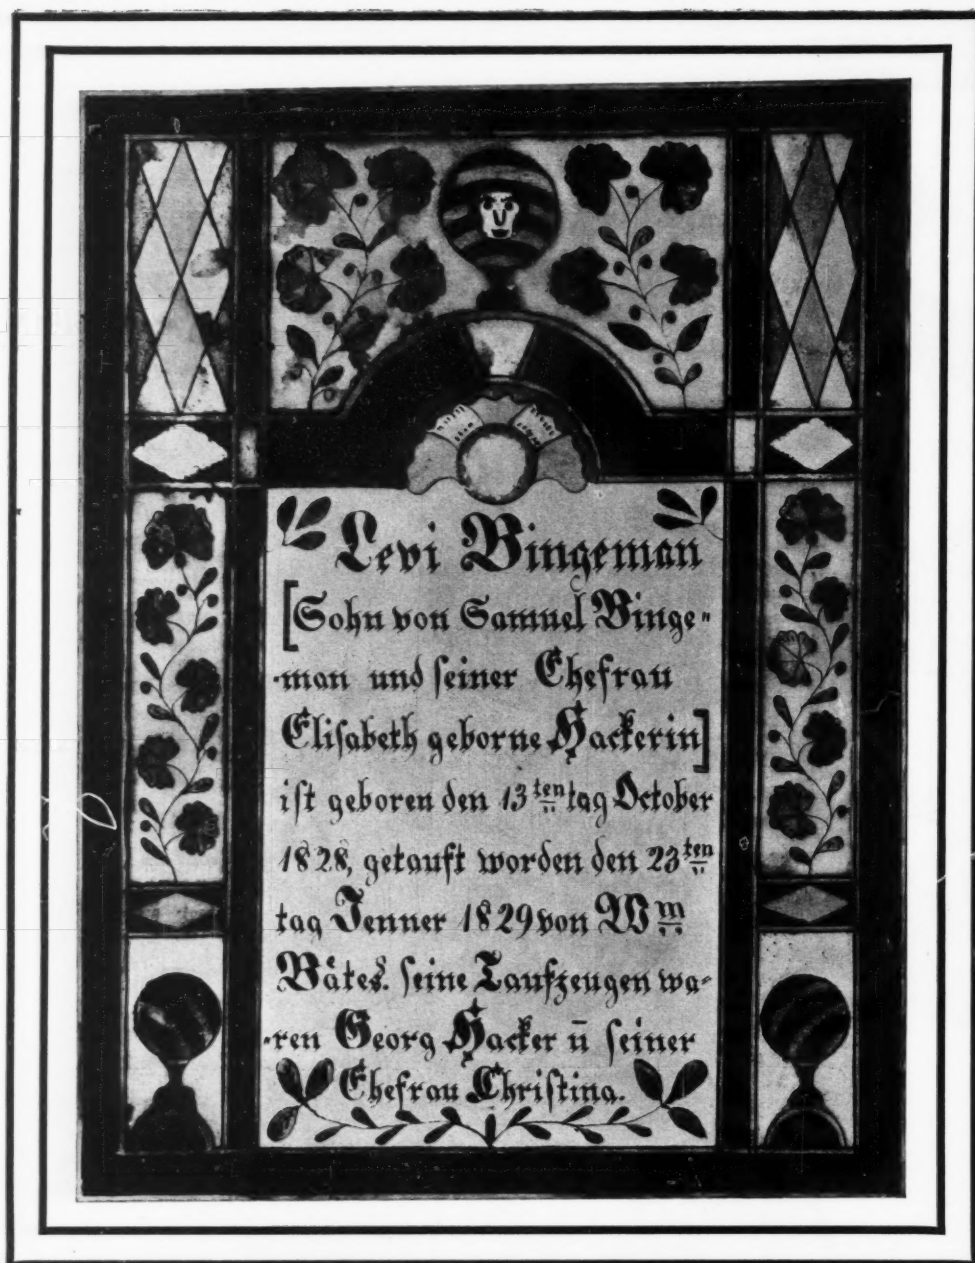 Levi Bingeman
[Sohn von Samuel Binge=
=man und seiner Ehefrau
Elisabeth geborne Hackerin]
ist geboren den 13ten tag October
1828, getauft worden den 23ten
tag Jenner 1829 von Wm
Bätes. seine Taufzeugen wa=
=ren Georg Hacker ū seiner
Ehefrau Christina.